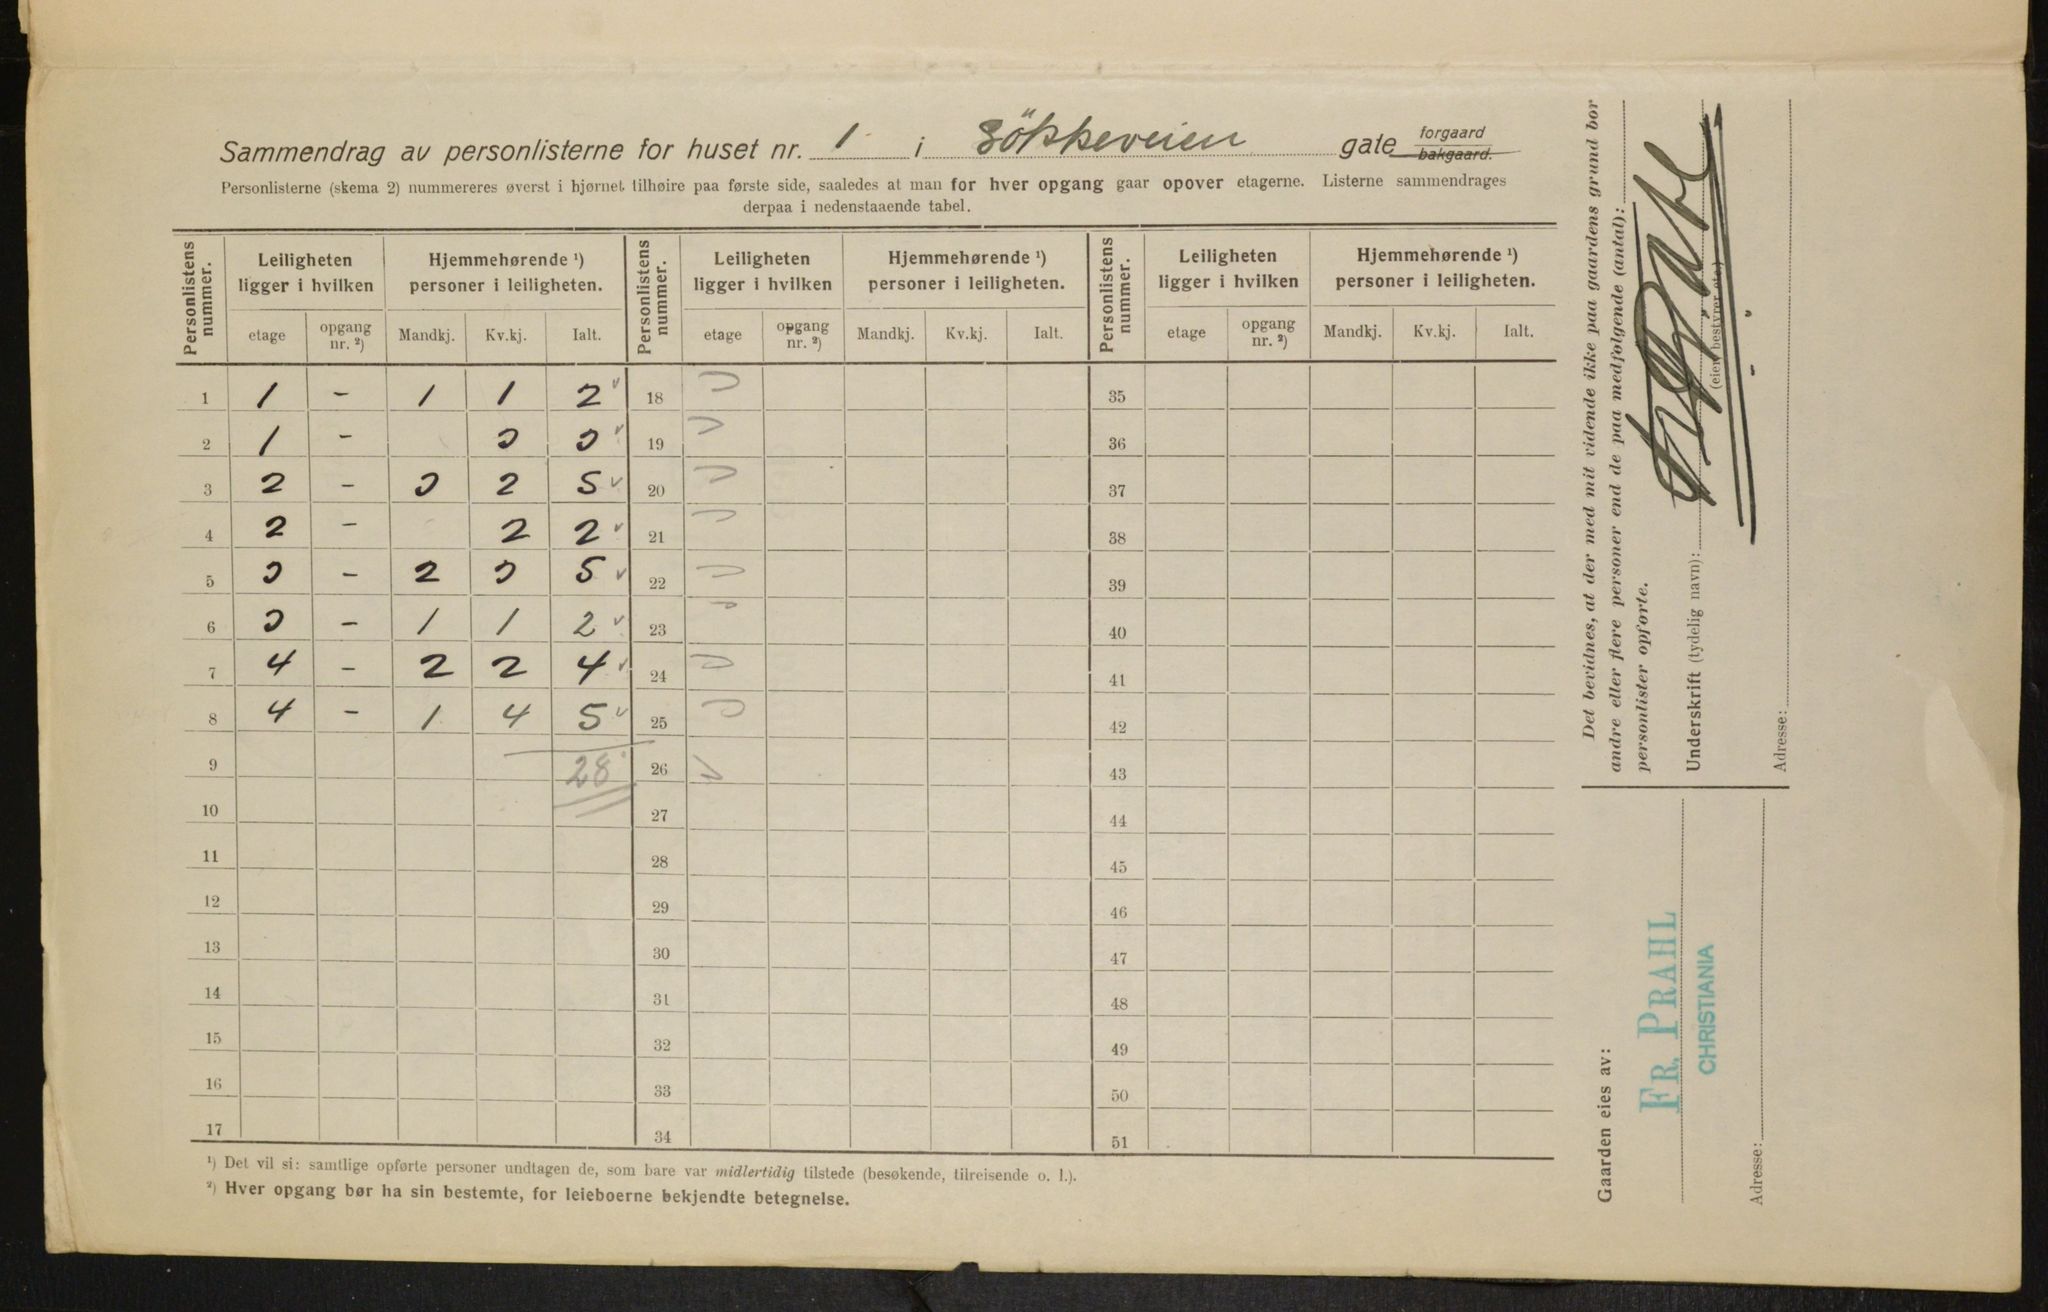 Sammendrag av personlisterne for huset nr. 1 i Sökkeveien gate forgaard bakgaard.
Personlisterne (skema 2) nummereres øverst i hjørnet tilhøire paa første side, saaledes at man for hver opgang gaar opover etagerne. Listerne sammendrages
derpaa i nedenstaaende tabel.
Personlistens nummer. Leiligheten ligger i hvilken Hjemmehørende ¹) personer i leiligheten. Personlistens nummer. Leiligheten ligger i hvilken Hjemmehørende ¹) personer i leiligheten. Personlistens nummer. Leiligheten ligger i hvilken Hjemmehørende ¹) personer i leiligheten.
etage opgang nr. ²) Mandkj. Kv.kj. Ialt. etage opgang nr. ²) Mandkj. Kv.kj. Ialt. etage opgang nr. ²) Mandkj. Kv.kj. Ialt.
1 1 - 1 1 2 18 35
2 1 - 3 3 19 36
3 2 - 3 2 5 20 37
4 2 - 2 2 21 38
5 3 - 2 3 5 22 39
6 3 - 1 1 2 23 40
7 4 - 2 2 4 24 41
8 4 - 1 4 5 25 42
9 28 26 43
10 27 44
11 28 45
12 29 46
13 30 47
14 31 48
15 32 49
16 33 50
17 34 51
¹) Det vil si: samtlige opførte personer undtagen de, som bare var midlertidig tilstede (besøkende, tilreisende o. l.).
²) Hver opgang bør ha sin bestemte, for leieboerne bekjendte betegnelse.
Det bevidnes, at der med mit vidende ikke paa gaardens grund bor
andre eller flere personer end de paa medfølgende (antal):
personlister opførte.
Underskrift (tydelig navn):
(eier, bestyrer etc.)
Adresse:
Gaarden eies av:
FR. PRAHL
CHRISTIANIA
Adresse: